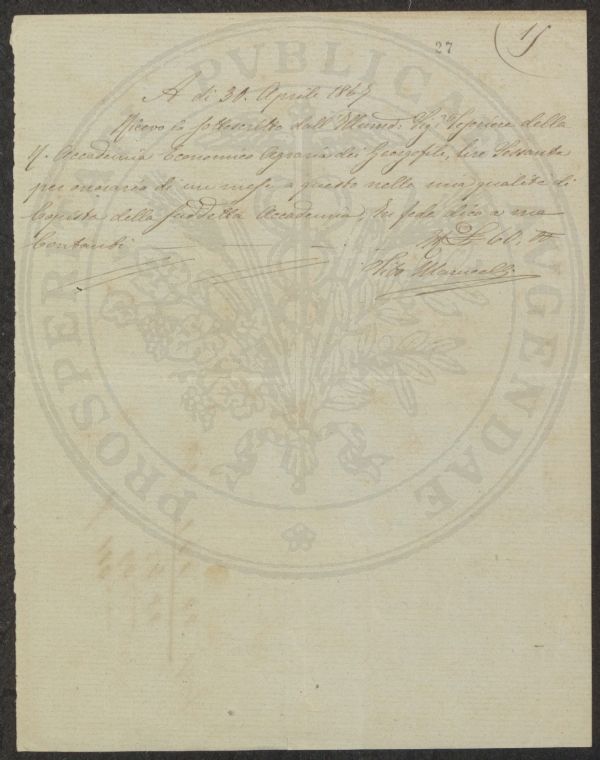 27
15
A dì 30. Aprile 1867
Ricevo io sottoscritto dall' Illmo. Sigr. della
R. Accademia Economico Agraria dei Georgofili, lire Sessanta
per onorario di un mese, a questo nella mia qualità di
Copista della suddetta Accademia, In fede dico a me
Contanti L. 60.
Marucelli
PROSPERITATI PUBLICAE AUGENDAE